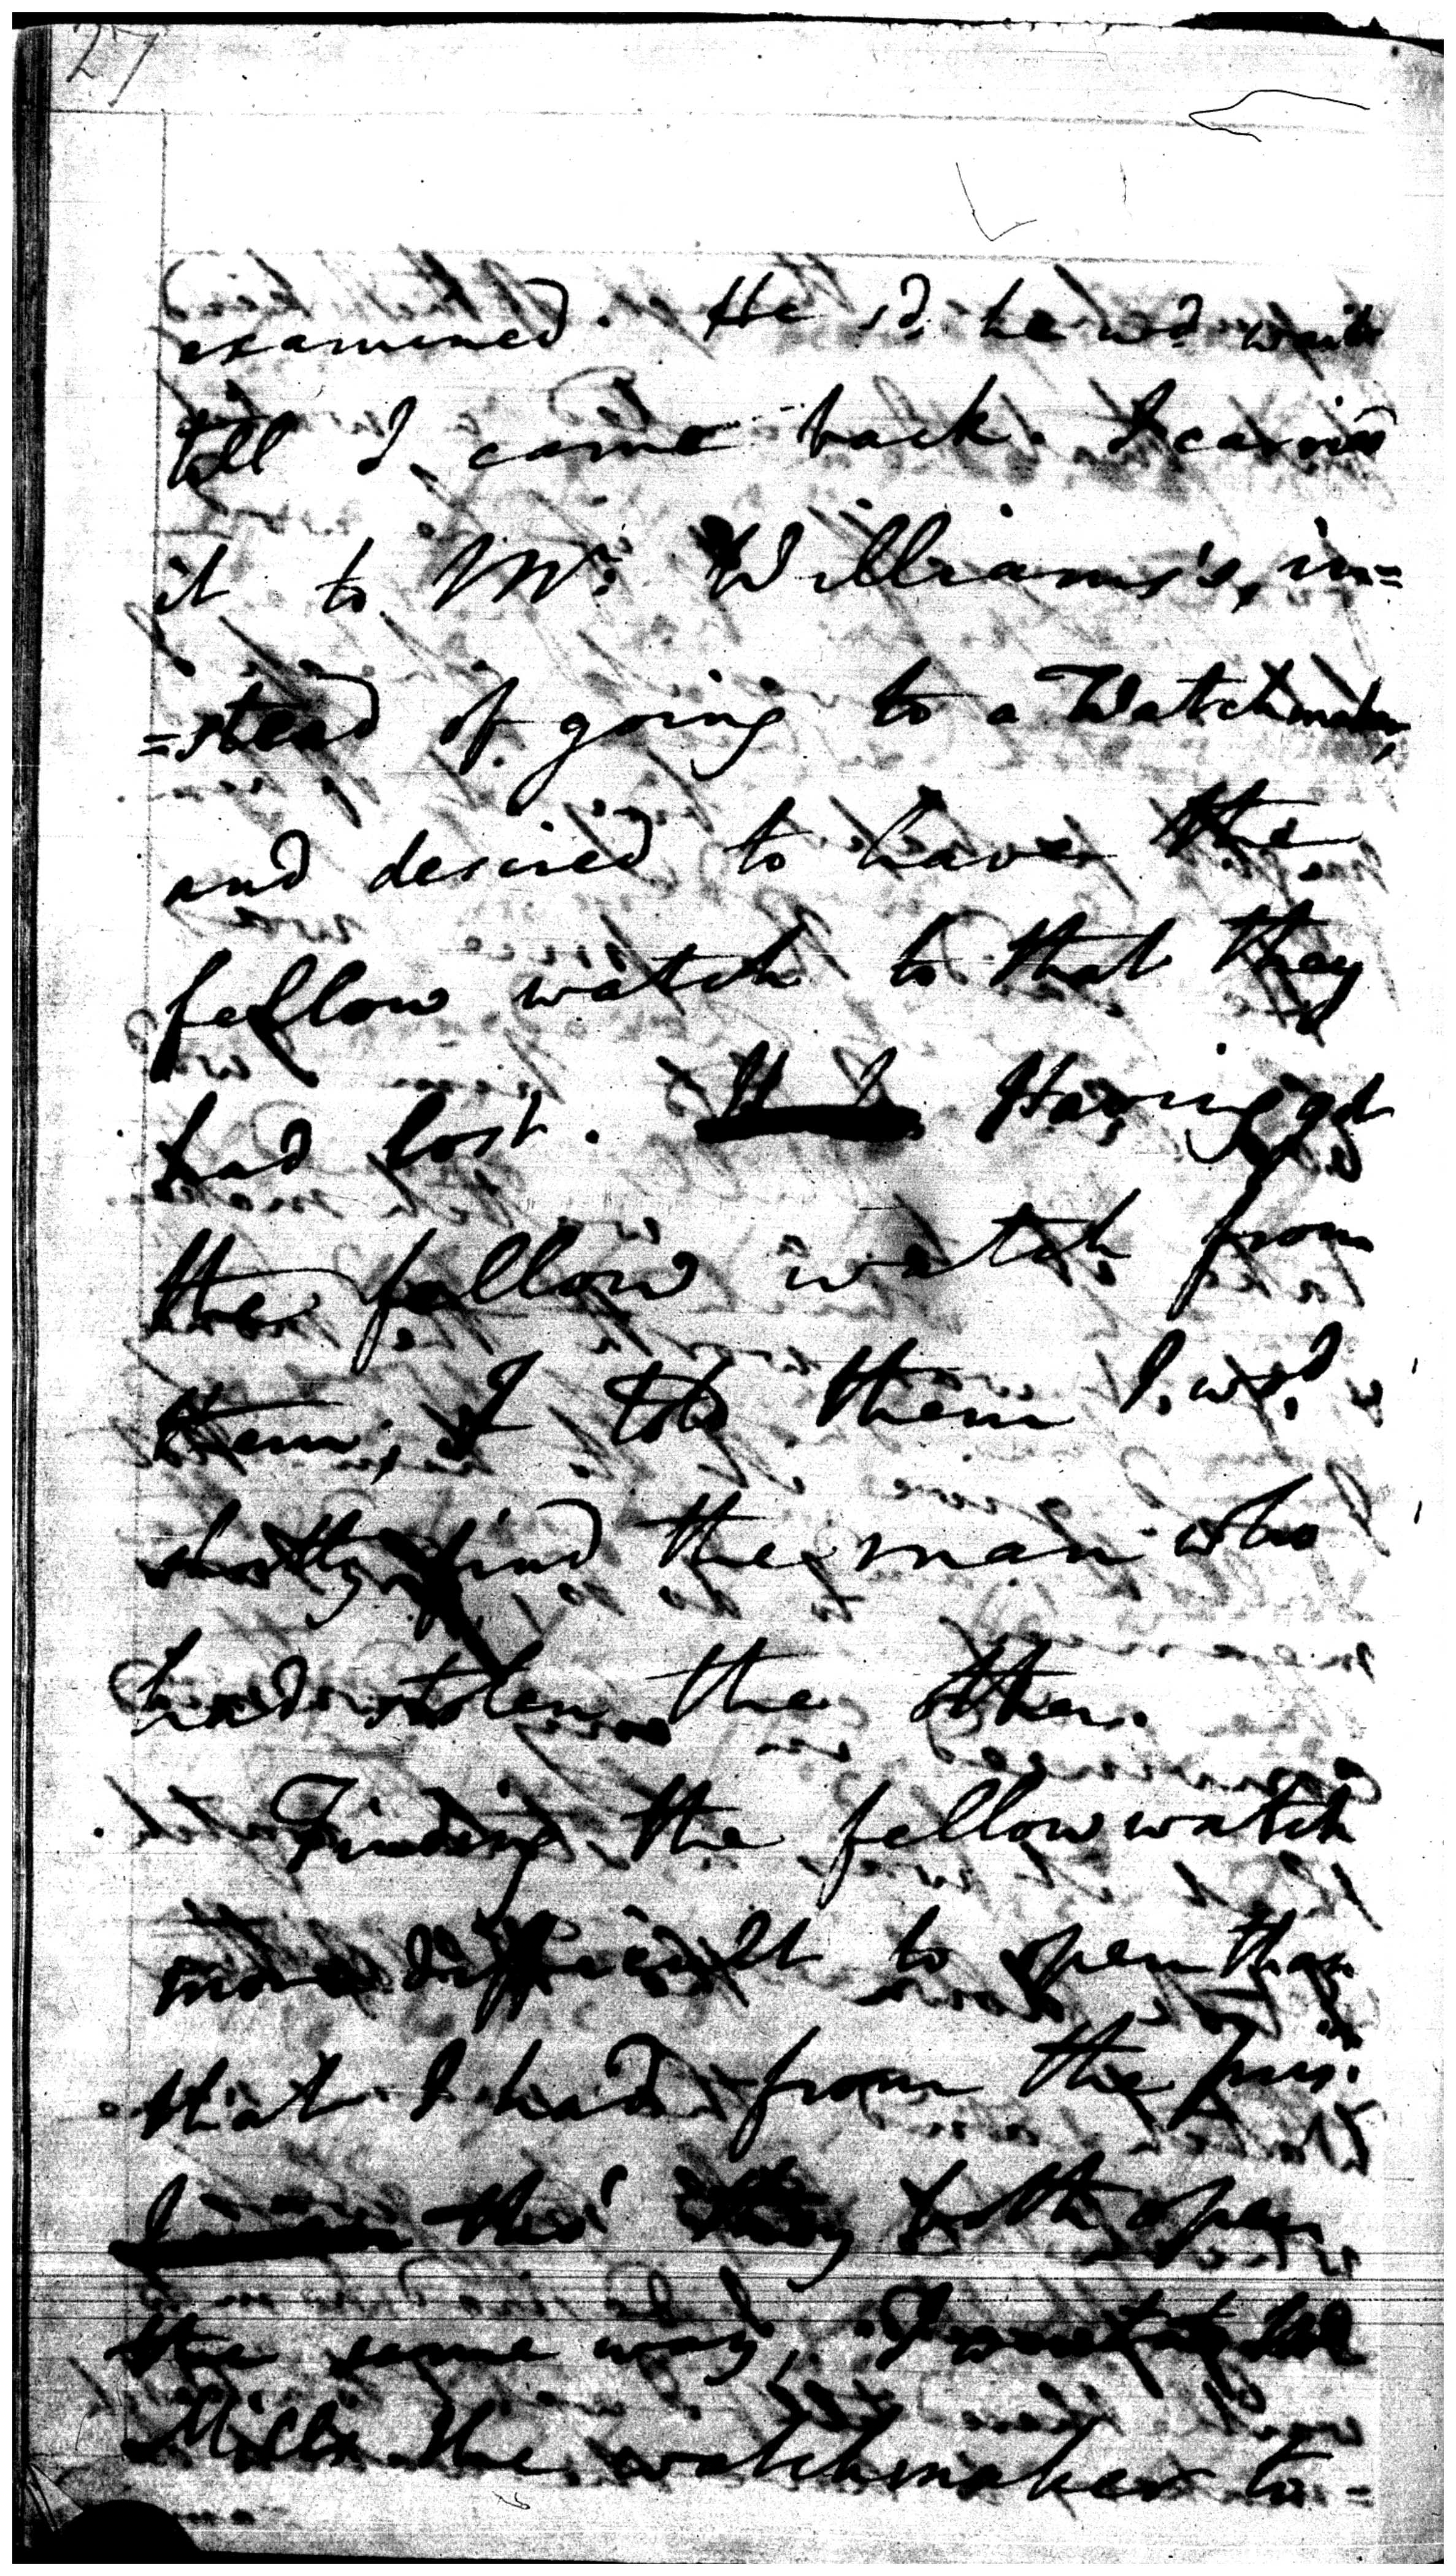 27
examined. He sd. he wd. wait
till I came back. I carried
it to Mr. Williams's, in=
=stead of going to a Watchmaker,
and desired to have the
fellow watch to that they
had lost. Having got
the fellow watch from
them, I told them I wd.
shortly find the man who
had stolen the other.
Finding the fellow watch
more difficult to open than
that I had from the pris.
tho' they both open
the same way, I went to
Mills the watchmaker to=